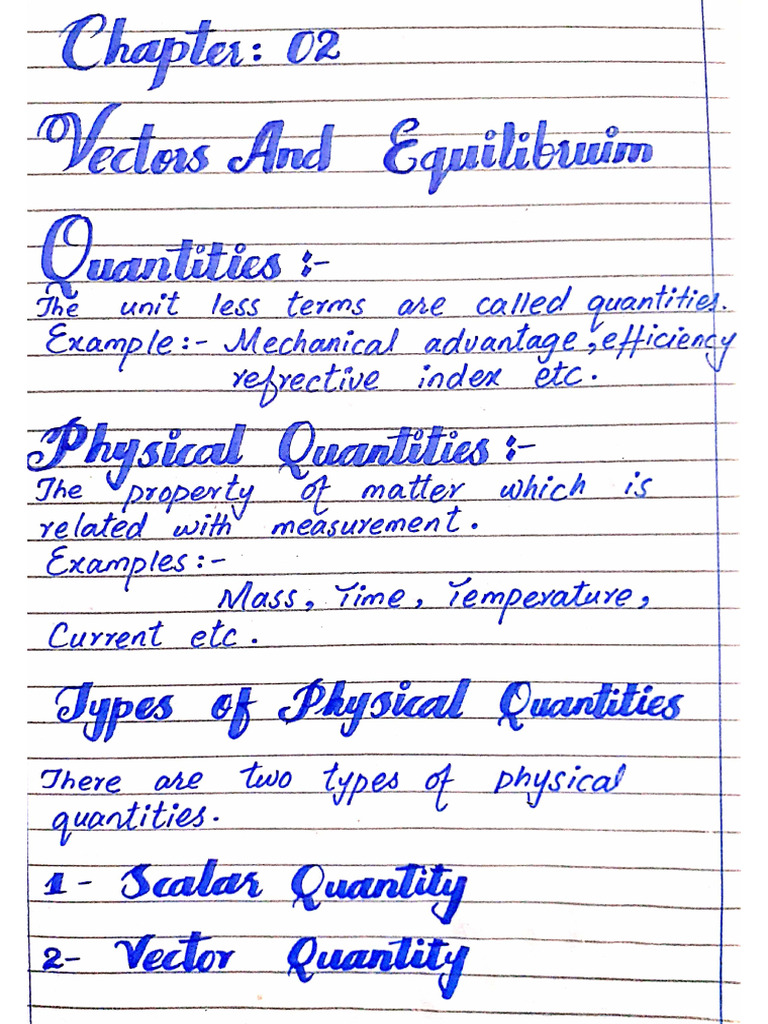 Chapter: 02
Vectors And Equilibruim
Quantities :-
The unit less terms are called quantities.
Example :- Mechanical advantage, efficiency
refrective index etc.
Physical Quantities :-
The property of matter which is
related with measurement.
Examples :-
Mass, Time, Temperature,
Current etc.
Types of Physical Quantities
There are two types of physical
quantities.
1- Scalar Quantity
2- Vector Quantity